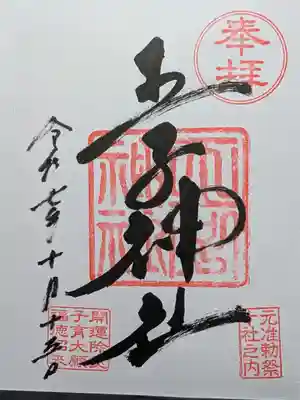 奉拝
元准勅祭
十社之内
王子神社
王子
神社
開運除災
子育大願
福徳招来
令和七年十月十五日